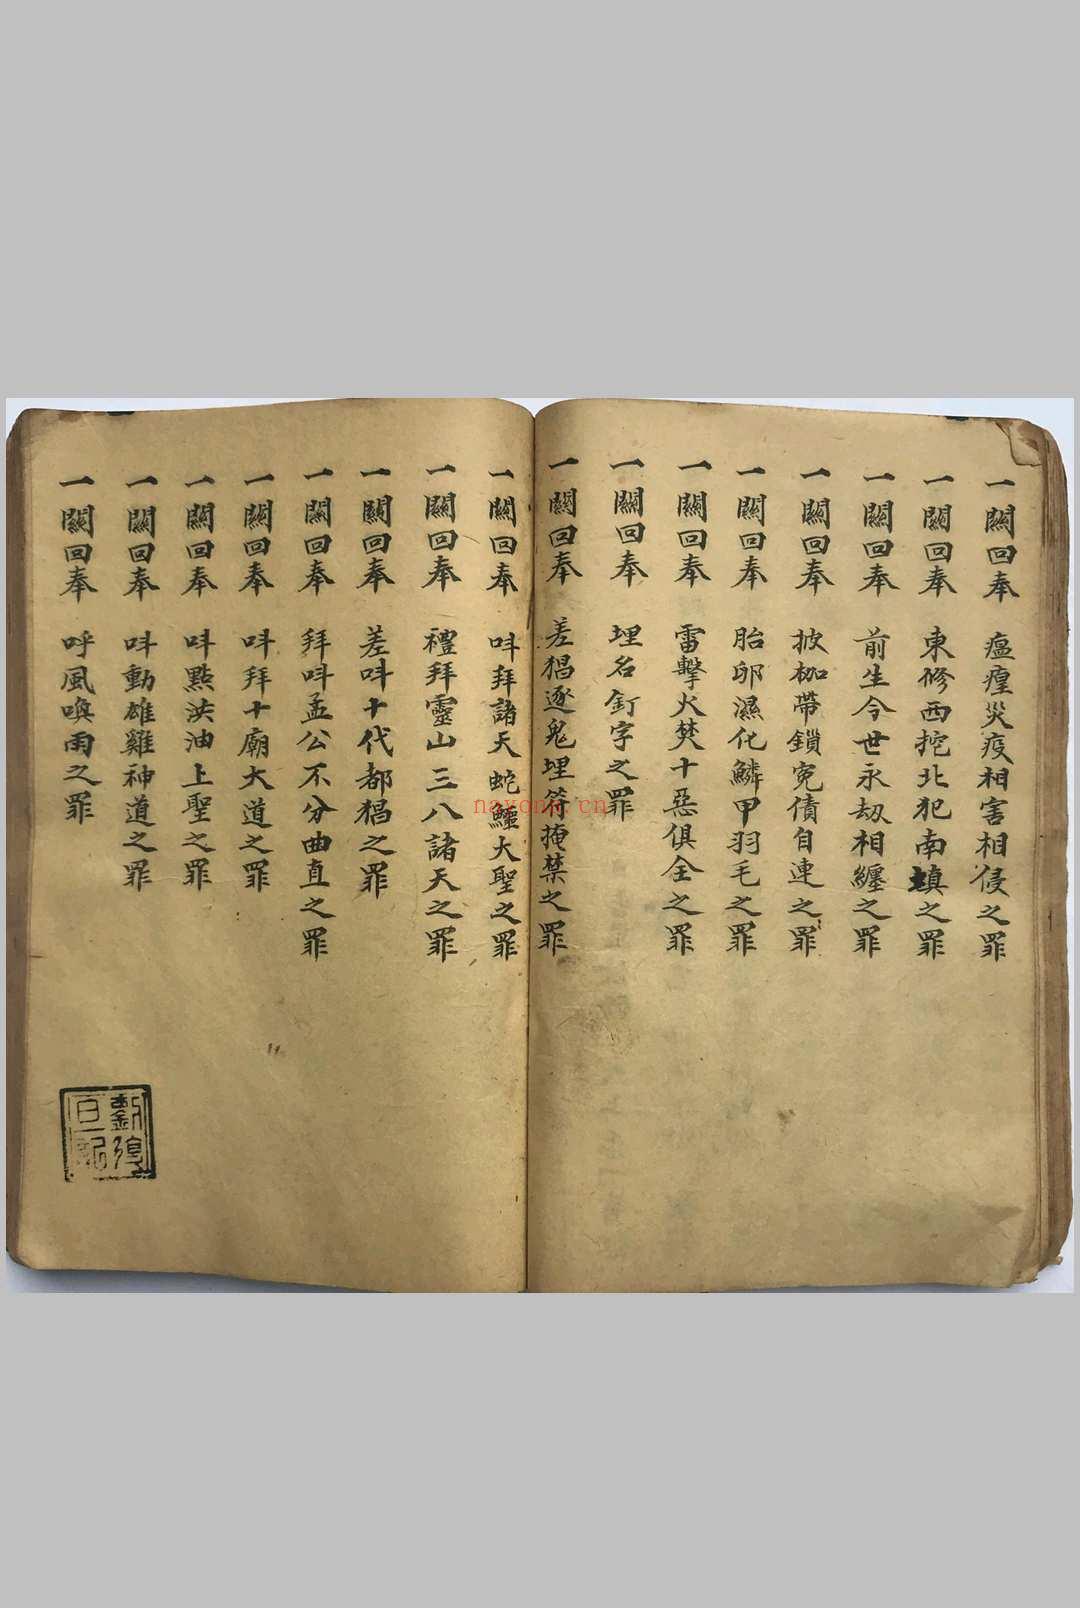 一關回奉 瘟瘽災疫相害相侵之罪
一關回奉 東修西挖北犯南填之罪
一關回奉 前生今世永劫相纏之罪
一關回奉 披枷帶鎖寃債自連之罪
一關回奉 胎卵濕化鱗甲羽毛之罪
一關回奉 雷擊火焚十惡俱全之罪
一關回奉 埋名釘字之罪
一關回奉 差猖逐鬼埋符掩禁之罪
一關回奉 呌拜諸天蛇鱷大聖之罪
一關回奉 禮拜靈山三八諸天之罪
一關回奉 差呌十代都猖之罪
一關回奉 拜呌孟公不分曲直之罪
一關回奉 呌拜十廟大道之罪
一關回奉 呌點洪油上聖之罪
一關回奉 呌動雄雞神道之罪
一關回奉 呼風喚雨之罪
nayona.cn